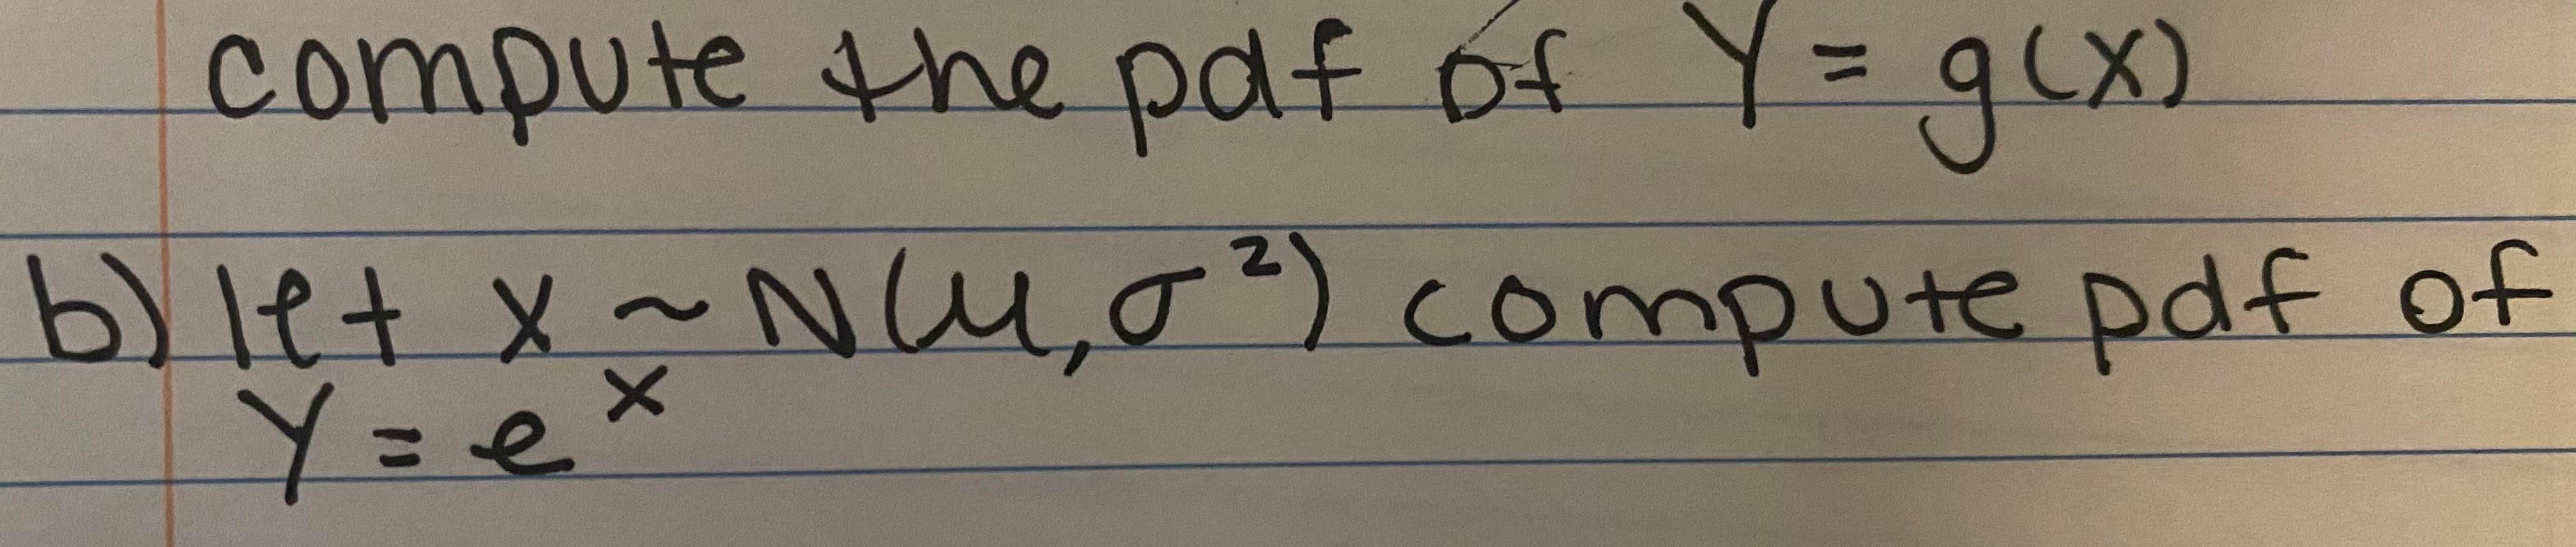 compute the pdf of Y = g(x)
b) let x ~ N(μ,σ²) compute pdf of
Y = eˣ